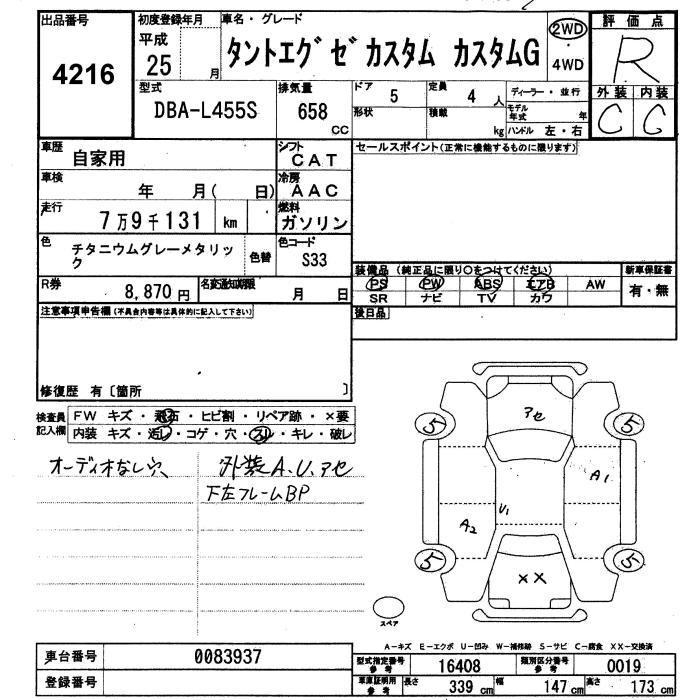 出品番号
4216
初度登録年月
平成
25 月
車名・グレード
タントエグゼカスタム カスタムG
2WD
・
4WD
評価点
R
外装 内装
C C
型式
DBA-L455S
排気量
658
CC
ドア
5
定員
4 人
ディーラー・並行
形状
積載
kg
モデル年式 年
ハンドル 左・右
車歴
自家用
シフト
CAT
車検
年 月( 日)
冷房
AAC
走行
7万9千131 km
燃料
ガソリン
色
チタニウムグレーメタリック
色替
色コード
S33
R券
8,870円
名変通知期限
月 日
セールスポイント(正常に機能するものに限ります)
装備品 (純正品に限り○をつけてください)
PS PW ABS エアB AW
SR ナビ TV カワ
新車保証書
有・無
後日品
注意事項申告欄(不具合内容等は具体的に記入して下さい)
修復歴 有〔箇所 〕
検査員記入欄
FW キズ・飛石・ヒビ割・リペア跡・×要
内装 キズ・汚レ・コゲ・穴・スレ・キレ・破レ
オーディオなし
外装A.U.アセ
下左フレームBP
アセ
5 5
A1
U1
A2
5 5
XX
スペア
A-キズ E-エクボ U-凹み W-補修跡 S-サビ C-腐食 XX-交換済
車台番号
0083937
登録番号
型式指定番号
参考
16408
類別区分番号
参考
0019
車庫証明用
参考
長さ 339 cm
幅 147 cm
高さ 173 cm